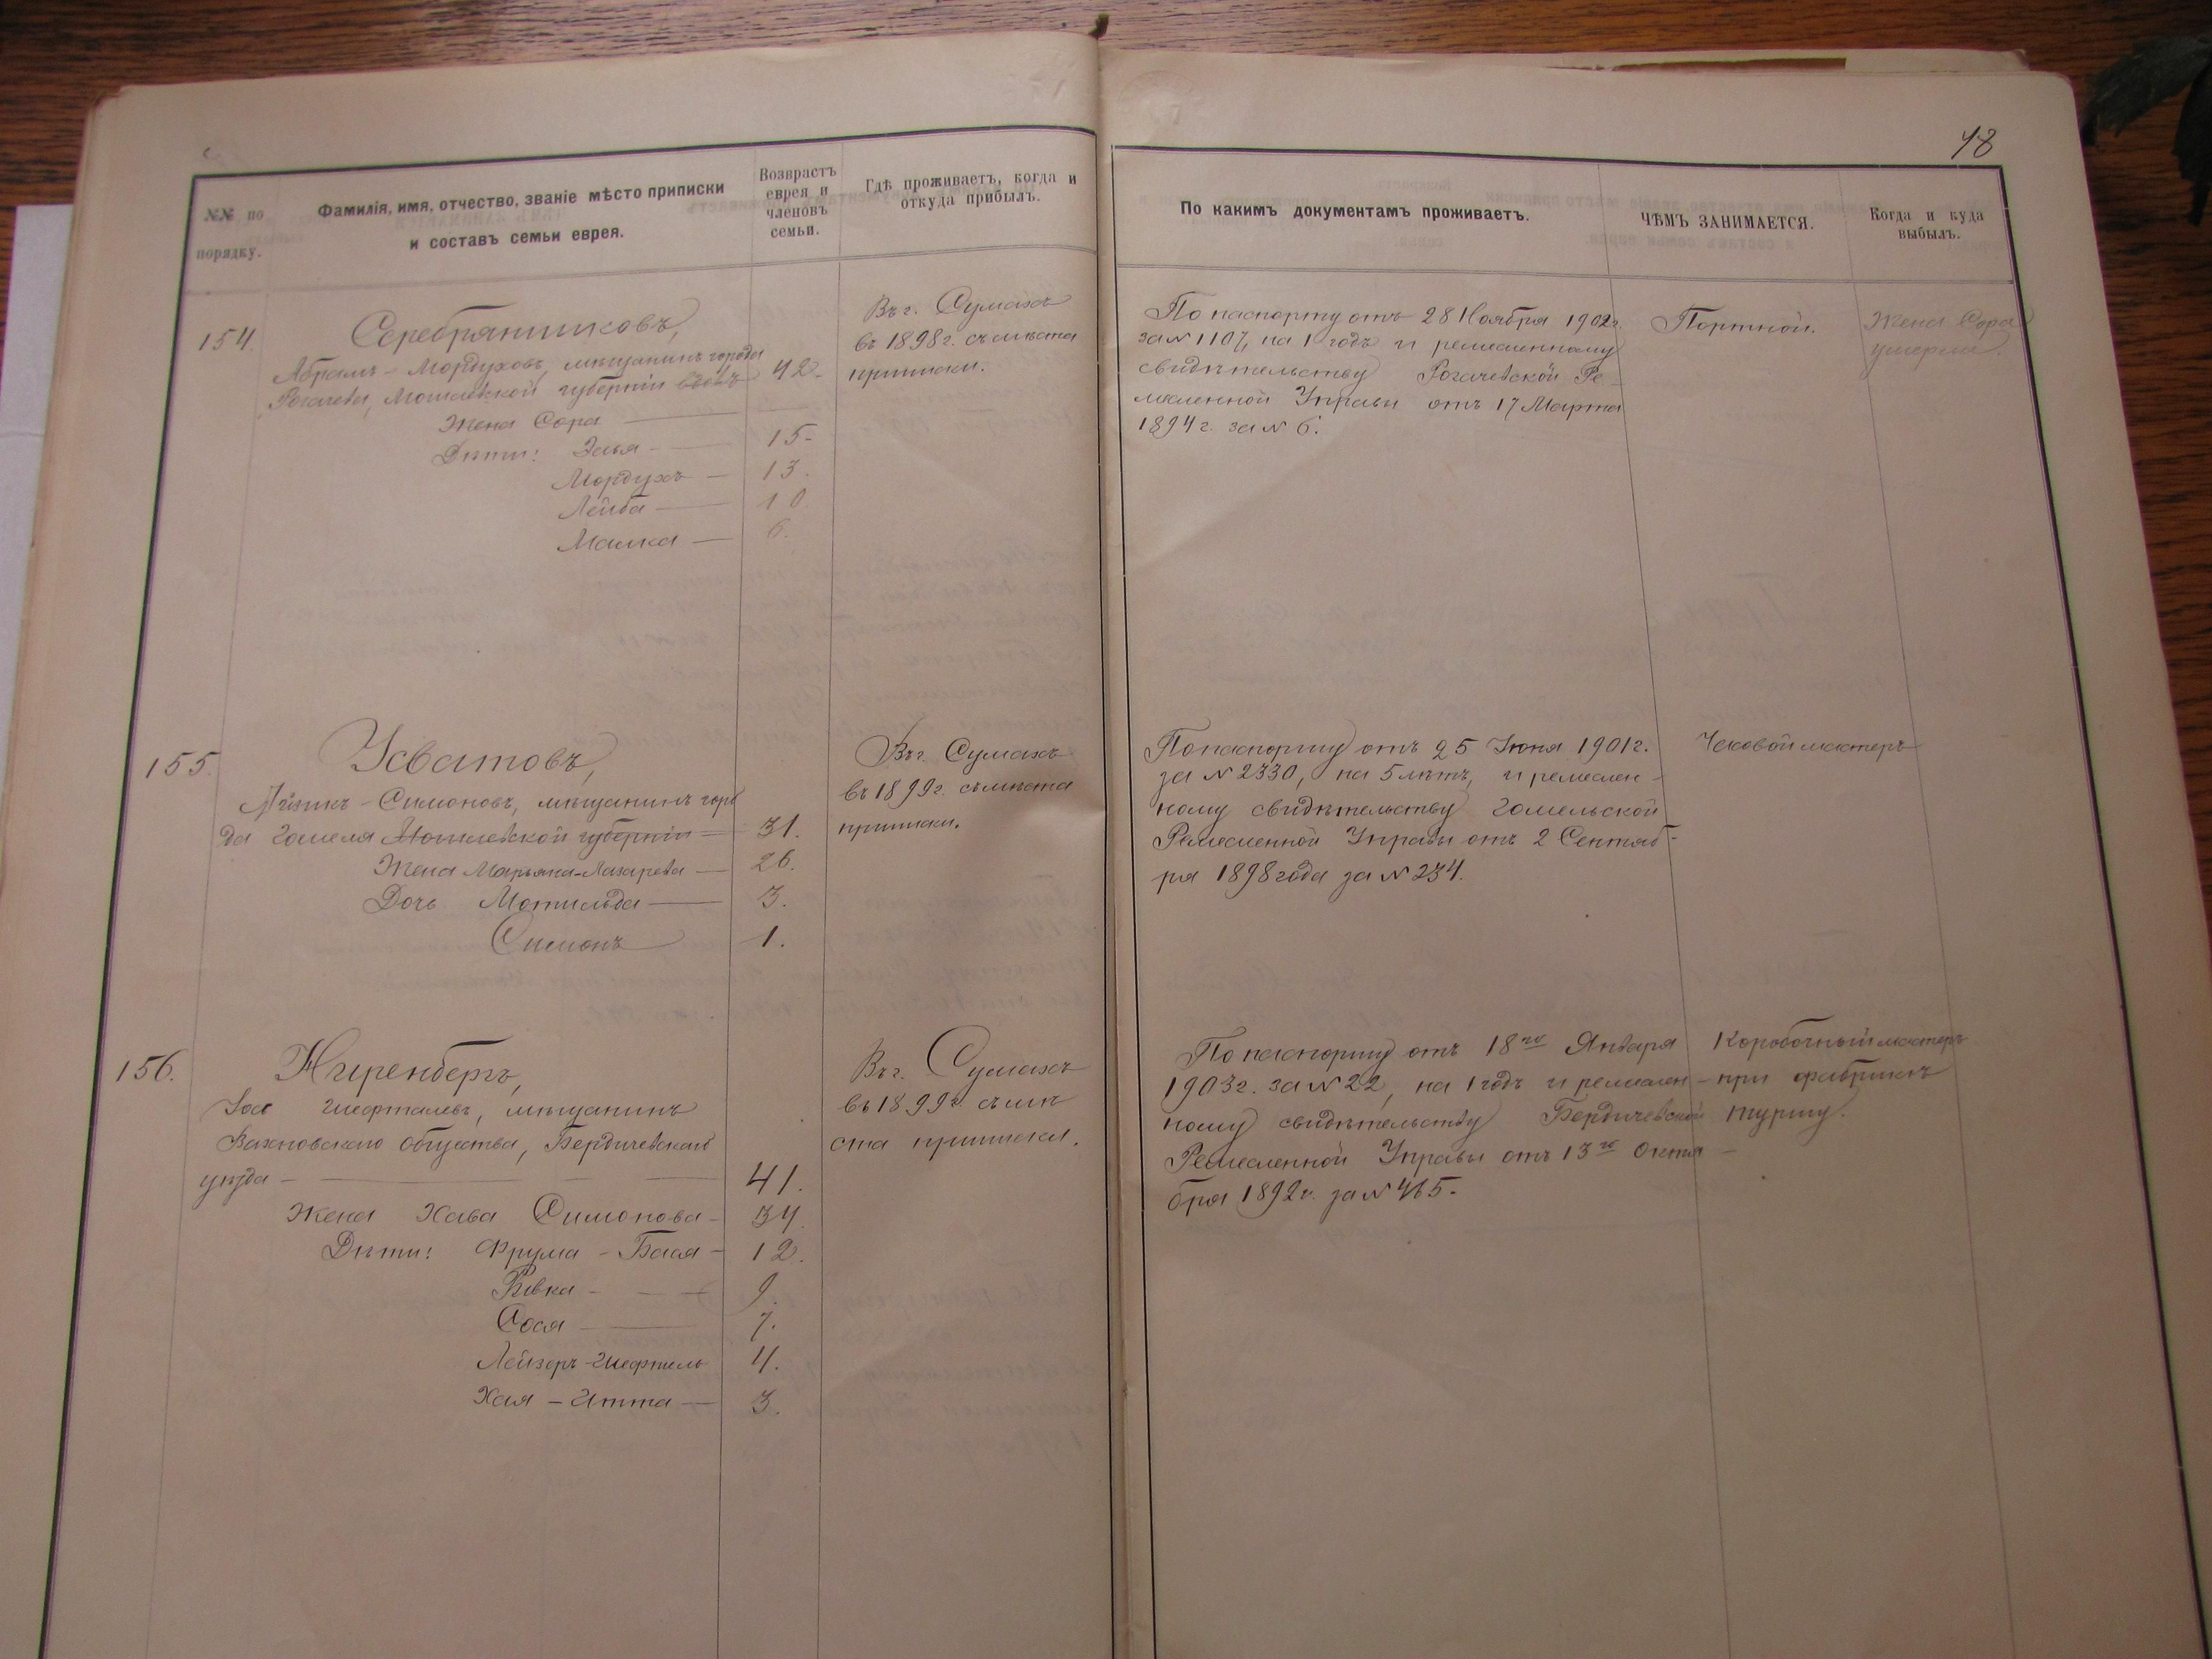 48
№№ по порядку.
Фамилія, имя, отчество, званіе мѣсто приписки
и составъ семьи еврея.
Возврастъ
еврея и
членовъ
семьи.
Гдѣ проживаетъ, когда и
откуда прибылъ.
По какимъ документамъ проживаетъ.
ЧѢМЪ ЗАНИМАЕТСЯ.
Когда и куда
выбылъ.
154
Серебрянниковъ,
Абрамъ - Мордуховъ, мѣщанинъ города
Рогачева, Могилевской губерніи 42
Жена Сора
Дѣти: 15
Мордухъ — 13.
Лейба — 10
Малка — 6.
Въ г. Сумахъ
въ 1898 г. съ мѣста
приписки.
По паспорту отъ 28 Ноября 1902 г.
за № 1107, на 1 годъ и ремесленному
свидѣтельству Рогачевской Ре-
месленной Управы отъ 17 Марта
1894 г. за № 6.
Портной.
Жена Сора
умерла.
155.
Усватовъ,
Айзикъ - Симоновъ, мѣщанинъ горо
да Гомеля Могилевской губерніи — 31.
Жена Марьяна-Лазарева — 26.
Дочь Мотильда — 3.
Симонъ 1.
Въ г. Сумахъ
въ 1899 г. съ мѣста
приписки.
По паспорту отъ 25 Іюня 1901 г.
за № 2330, на 5 лѣтъ, и ремеслен-
ному свидѣтельству Гомельской
Ремесленной Управы отъ 2 Сентяб-
ря 1898 года за № 234.
Часовой мастеръ
156.
Ниренбергъ,
Іос Гшефталевъ, мѣщанинъ
Вахновскаго общества, Бердичевскаго
уѣзда — 41.
Жена Хава Симонова — 34.
Дѣти: Фрума - Бася — 12.
Ривка — 9.
Сося — 7.
Лейзеръ-Гшефтель 4.
Хая - Итта — 3.
Въ г. Сумахъ
въ 1899 г. съ мѣ
ста приписки.
По паспорту отъ 18го Января
1903 г. за № 22, на 1 годъ и ремеслен-
ному свидѣтельству Бердичевской
Ремесленной Управы отъ 13го Октя-
бря 1892 г. за № 465.
Коробочный мастеръ
при фабрикѣ